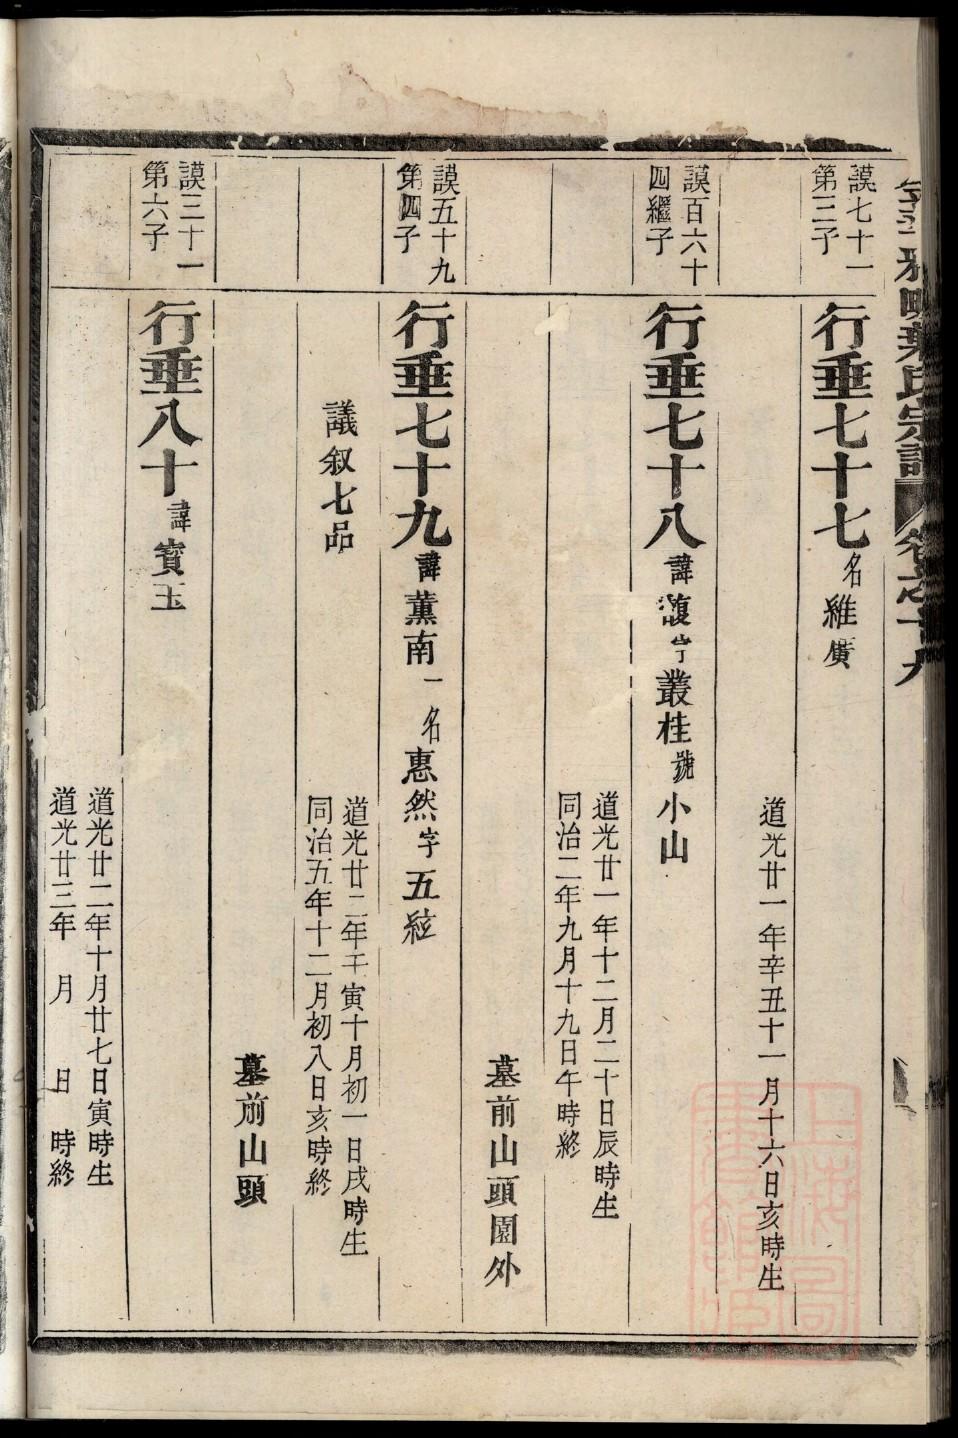 葉氏宗譜
謨七十一
第三子
行垂七十七名維廣
道光廿一年辛丑十一月十六日亥時生
謨百六十
四繼子
行垂七十八諱馥字叢桂號小山
道光廿一年十二月二十日辰時生
同治二年九月十九日午時終
墓前山頭園外
謨五十九
第四子
行垂七十九諱薰南一名惠然字五絃
議叙七品
道光廿二年壬寅十月初一日戌時生
同治五年十二月初八日亥時終
墓前山頭
謨三十一
第六子
行垂八十諱寶玉
道光廿二年十月廿七日寅時生
道光廿三年 月 日 時終